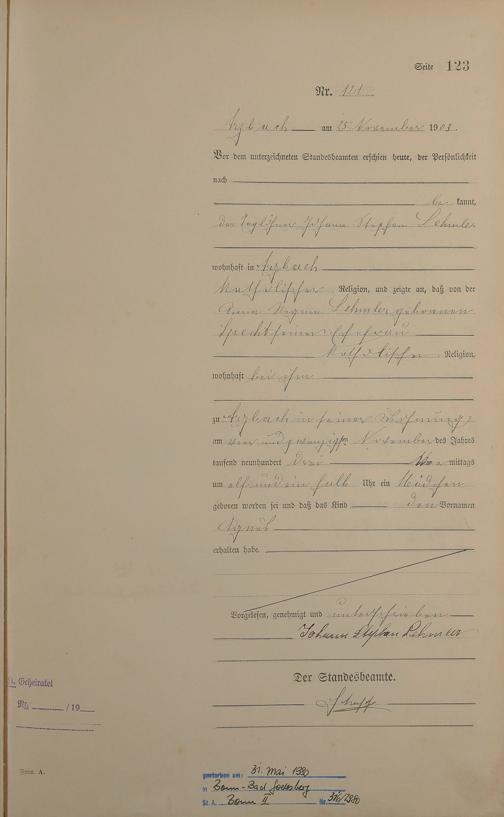 Seite 123
Nr. 121
Arzbach am 25 November 1903.
Vor dem unterzeichneten Standesbeamten erschien heute, der Persönlichkeit
nach
be kannt,
der Taglöhner Johann Stephan Lehmler
wohnhaft in Arzbach
Katholischer Religion, und zeigte an, daß von der
Anna Regina Lehmler geborenen
Specht seiner Ehefrau
Katholischer Religion,
wohnhaft bei ihm
zu Arzbach in seiner Wohnung
am vier und zwanzigsten November des Jahres
tausend neunhundert drei mittags
um elf und ein halb Uhr ein Mädchen
geboren worden sei und daß das Kind den Vornamen
Agnes
erhalten habe.
Vorgelesen, genehmigt und unterschrieben
Johann Stephan Lehmler
Der Standesbeamte.
Geheiratet
Nr. /19
Form. A.
gestorben am: 31. Mai 1980
in Bonn-Bad Godesberg
St. A. Bonn II Nr.